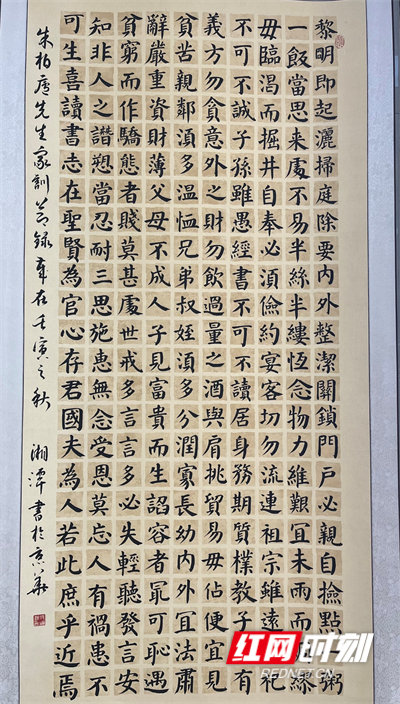 黎明即起灑掃庭除要内外整潔關鎖門戶必親自撿點粥
一飯當思来處不易半絲半縷恆念物力維艱宜未雨而繆
毋臨渴而掘井自奉必須儉約宴客切勿流連祖宗雖遠祀
不可不誠子孫雖愚經書不可不讀居身務期質樸教子有
義方勿貪意外之財勿飲過量之酒與肩挑貿易毋佔便宜見
貧苦親鄰須多溫恤兄弟叔姪須多分潤寡長幼内外宜法肅
辭嚴重資財薄父母不成人子見富貴而生諂容者最可恥遇
貧窮而作驕態者賤莫甚處世戒多言言多必失輕聽發言安
知非人之譖愬當忍耐三思施惠無念受恩莫忘人有禍患不
可生喜讀書志在聖賢為官心存君國夫為人若此庶乎近焉
朱柏廬先生家訓節錄 歲在壬寅之秋 湘潭書於京華
红网时刻
REDNET.CN